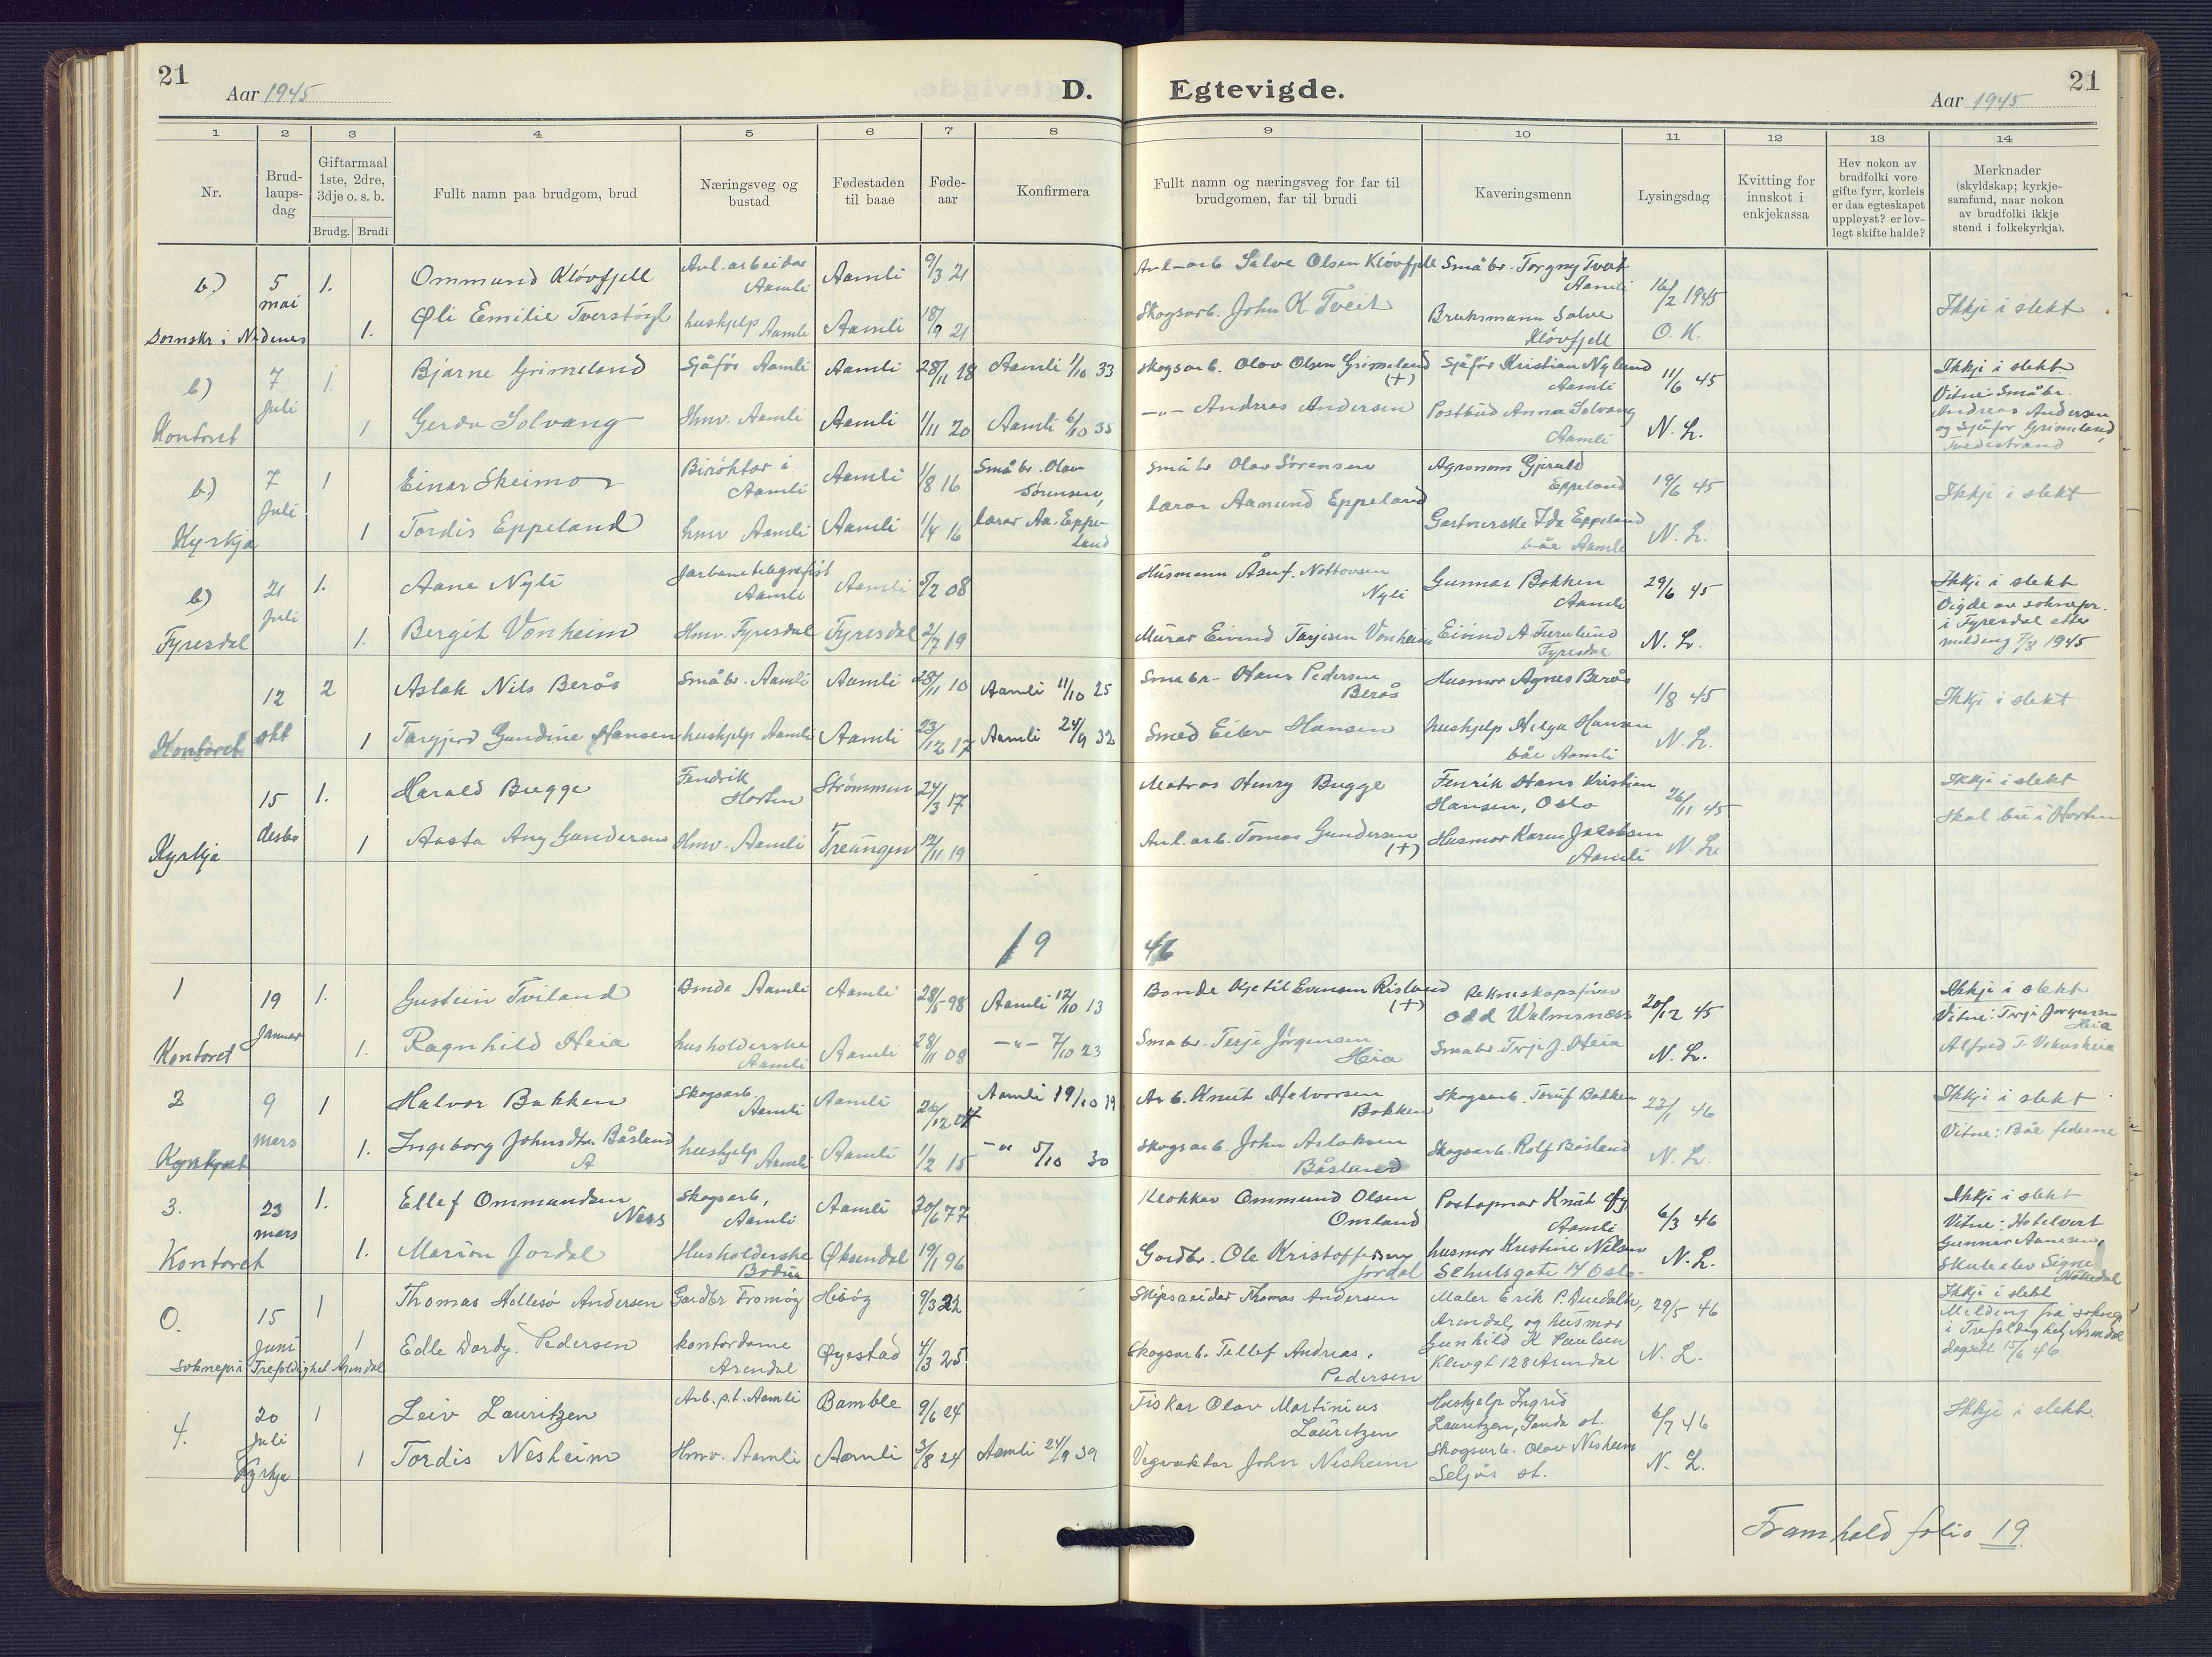 21
Aar 1945
D.
Egtevigde.
Aar 1945
21
1 2 3 4 5 6 7 8 9 10 11 12 13 14
Nr.
Brud-
laups-
dag
Giftarmaal
1ste, 2dre,
3dje o. s. b.
Brudg. Brudi
Fullt namn paa brudgom, brud
Næringsveg og
bustad
Fødestaden
til baae
Føde-
aar
Konfirmera
Fullt namn og næringsveg for far til
brudgomen, far til brudi
Kaveringsmenn
Lysingsdag
Kvitting for
innskot i
enkjekassa
Hev nokon av
brudfolki vore
gifte fyrr, korleis
er daa egteskapet
uppløyst? er lov-
legt skifte halde?
Merknader
(skyldskap; kyrkje-
samfund, naar nokon
av brudfolki ikkje
stend i folkekyrkja).
b) 5 mai 1. Ommund Kløvfjell Anl. arbeidar Aamli Aamli 9/3 21 Anl-arb Salve Olsen Kløvfjell Småbr. Torgny Tveit Aamli 16/2 1945
Sornskr i Nedenes 1. Øli Emilie Tverstøyl hushjelp Aamli Aamli 18/7 21 Skogsarb. John K Tveit Bruksmann Salve Kløvfjell O. K. Ikkji i slekt
b) 7 Juli 1. Bjarne Grimeland Sjåfør Aamli Aamli 28/11 18 Aamli 1/10 33 Skogsarb. Olav Olsen Grimeland (+) Sjåfør Kristian Nyland Aamli 11/6 45 Ikkji i slekt.
Kontoret 1 Gerda Solvang Hmv. Aamli Aamli 1/11 20 Aamli 6/10 35 -"- Andreas Andersen Postbud Anna Solvang Aamli N. L. Vitne: Småbr. Andreas Andersen og Sjåfør Grimeland, Tvedestrand
b) 7 Juli 1 Einar Skeimo Birøktar i Aamli Aamli 1/8 16 Småbr. Olav Sørensen, Småbr Olav Sørensen Agronom Gjerald Eppeland 19/6 45
Kyrkja 1 Tordis Eppeland hmv Aamli Aamli 1/4 16 lærar Aa. Eppeland lærar Aamund Eppeland Gartnerske Ida Eppeland båe Aamli N. L. Ikkji i slekt
b) 21 Juli 1. Aane Nyli Jarbanetelegrafist Aamli Aamli 5/2 08 Husmann Åsuf. Nottovsen Nyli Gunnar Bakken Aamli 29/6 45 Ikkji i slekt
Fyresdal 1. Bergit Vonheim Hmv. Fyresdal Fyresdal 2/7 19 Murar Eivind Tarjeisen Vonheim Eivind A. Furulund Fyresdal N. L. Vigde av soknepr. i Fyresdal etter melding 7/8 1945
12 okt 2 Aslak Nils Berås Småbr. Aamli Aamli 28/11 10 Aamli 11/10 25 Småbr- Hans Pedersen Berås Husmor Agnes Berås 1/8 45 Ikkji i slekt
Kontoret 1 Targjerd Gundine Hansen hushjelp Aamli Aamli 23/12 17 Aamli 24/9 32 Smed Eilev Hansen hushjelp Helga Hansen båe Aamli N. L.
15 desbr 1. Harald Bugge Fendrik Horten Strømmen 24/3 17 Matros Henry Bugge Fenrik Hans Kristian Hansen, Oslo 26/11 45 Ikkji i slekt
Kyrkja 1 Aasta Any Gundersen Hmv. Aamli Treungen 12/11 19 Anl. arb. Tomas Gundersen (+) Husmor Karen Jacobsen Aamli N. L. Skal bu i Horten
19 46
1 19 Januar 1. Gustein Tviland Bonde Aamli Aamli 28/5 98 Aamli 12/10 13 Bonde Kjetil Evensen Risland (+) Rekneskapsførar Odd Walmsness 20/12 45 Ikkji i slekt
Kontoret 1. Ragnhild Heia husholderske Aamli Aamli 28/11 08 -"- 7/10 23 Småbr. Terje Jørgensen Heia Småbr. Terje J. Heia N. L. Vitne: Terje Jørgensen Heia Alfred T.
2 9 mars 1 Halvor Bakken Skogsarb. Aamli Aamli 26/12 04 Aamli 19/10 19 Arb. Knut Halvorsen Bakken Skogsarb. Toruf Bakken 23/1 46 Ikkji i slekt
1. Ingeborg Johnsdtr. Båsland A hushjelp Aamli Aamli 1/2 15 -" 5/10 30 Skogsarb. John Aslaksen Båsland Skogsarb. Rolf Båsland N. L. Vitne: Båe federne
3. 23 mars 1. Ellef Ommundsen Ness Skogsarb, Aamli Aamli 20/6 77 Klokkar Ommund Olsen Omland Postopnar Knut Aamli 6/3 46 Ikkji i slekt
Kontoret 1. Marion Jordal Husholderske Øksendal 19/1 96 Gardbr. Ole Kristoffersen Jordal husmor Kristine Nilsen Schulsgate 14 Oslo- N. L. Vitne: Hotelvert Gunnar Aamlsen, Skuleelev Signe
0. 15 Juni 1 Thomas Hellesø Andersen Gardbr Tromøy Hisøy 9/3 22 Skipsreidar Thomas Andersen Maler Erik P. Arendal, og husmor 29/5 46 Ikkji i slekt
Soknepr i Trefoldighet Arendal 1 Edle Dordy. Pedersen kontordame Arendal Øyestad 4/3 25 Skogsarb. Tellef Andreas. Pedersen Gunhild K Paulsen 128 Arendal N. L. Melding frå soknepr i Trefoldighet, Arendal dagsett 15/6 46
4. 20 Juli 1 Leiv Lauritzen Arb. p.t. Aamli Bamble 9/6 24 Fiskar Olav Martinius Lauritzen Hushjelp Ingrid Lauritzen, Sanda st. 6/7 46 Ikkji i slekt.
Kyrkja 1 Tordis Nesheim Hmv. Aamli Aamli 3/8 24 Aamli 24/9 39 Vegvaktar John Nesheim Skogsarb. Olav Nesheim Seljås st. N. L.
Framhald folio 19